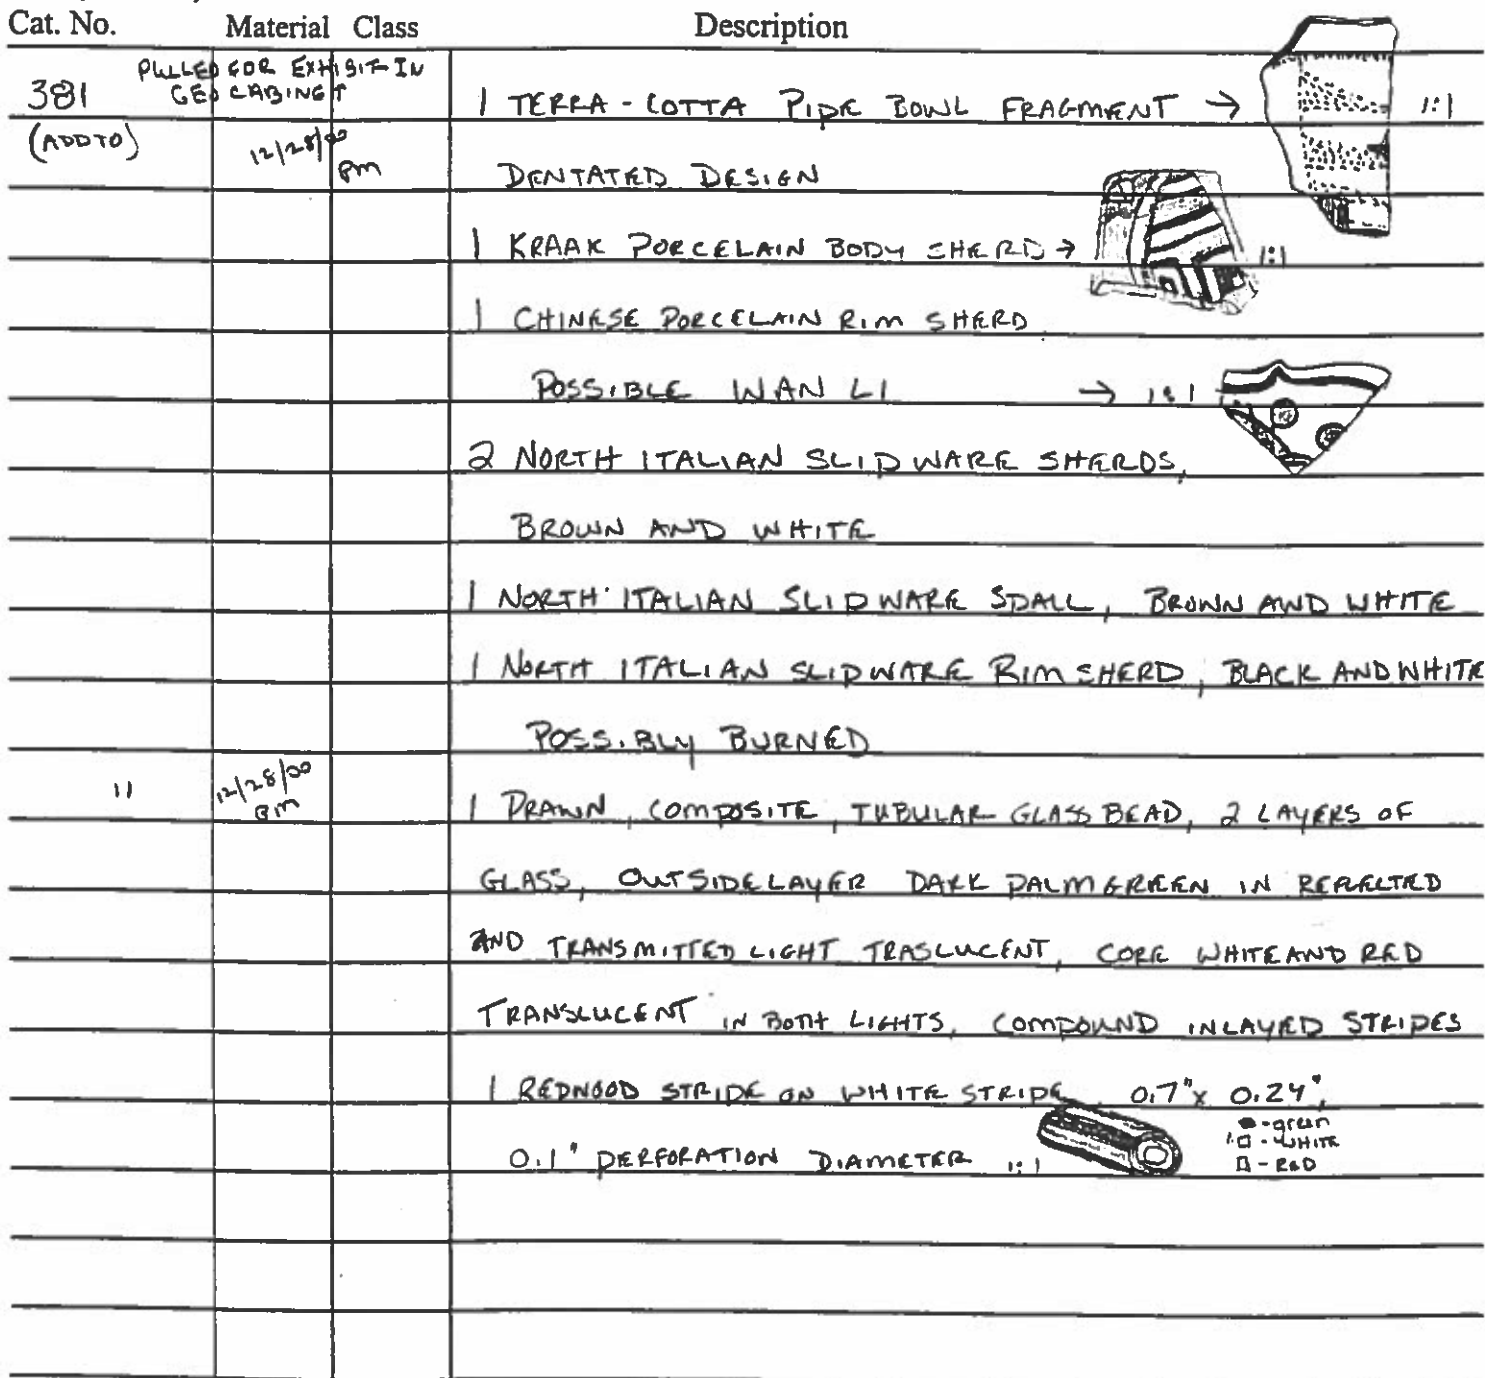 Cat. No. Material Class Description
PULLED FOR EXHIBIT IN
GEO CABINET
381 1 TERRA-COTTA PIPE BOWL FRAGMENT → 1:1
(ADD TO) 12/28/00
DENTATED DESIGN
1 KRAAK PORCELAIN BODY SHERD → 1:1
1 CHINESE PORCELAIN RIM SHERD
POSSIBLE WAN LI → 1:1
2 NORTH ITALIAN SLIPWARE SHERDS,
BROWN AND WHITE
1 NORTH ITALIAN SLIPWARE SPALL, BROWN AND WHITE
1 NORTH ITALIAN SLIPWARE RIM SHERD, BLACK AND WHITE
POSSIBLY BURNED
12/28/00
11 1 DRAWN, COMPOSITE, TUBULAR GLASS BEAD, 2 LAYERS OF
GLASS, OUTSIDE LAYER DARK PALM GREEN IN REFLECTED
AND TRANSMITTED LIGHT TRASLUCENT, CORE WHITE AND RED
TRANSLUCENT IN BOTH LIGHTS, COMPOUND INLAYED STRIPES
1 REDWOOD STRIPE ON WHITE STRIPE 0.7" x 0.24",
- green
- WHITE
- RED
0.1" PERFORATION DIAMETER 1:1